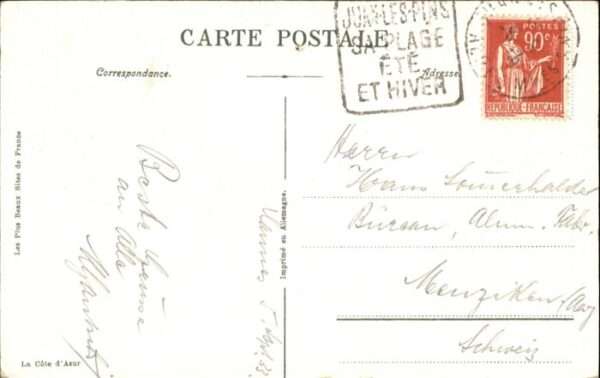 CARTE POSTALE
JUAN-LES-PINS
SA PLAGE
ÉTÉ
ET HIVER
POSTES
90c
REPUBLIQUE FRANÇAISE
Correspondance.
Adresse
Les Plus Beaux Sites de France
La Côte d'Azur
Imprimé en Allemagne.
Beste
an Alle
Herrn
Hans
Bureau, Alum. Fabr.
Menziken, Aarg
Schweiz